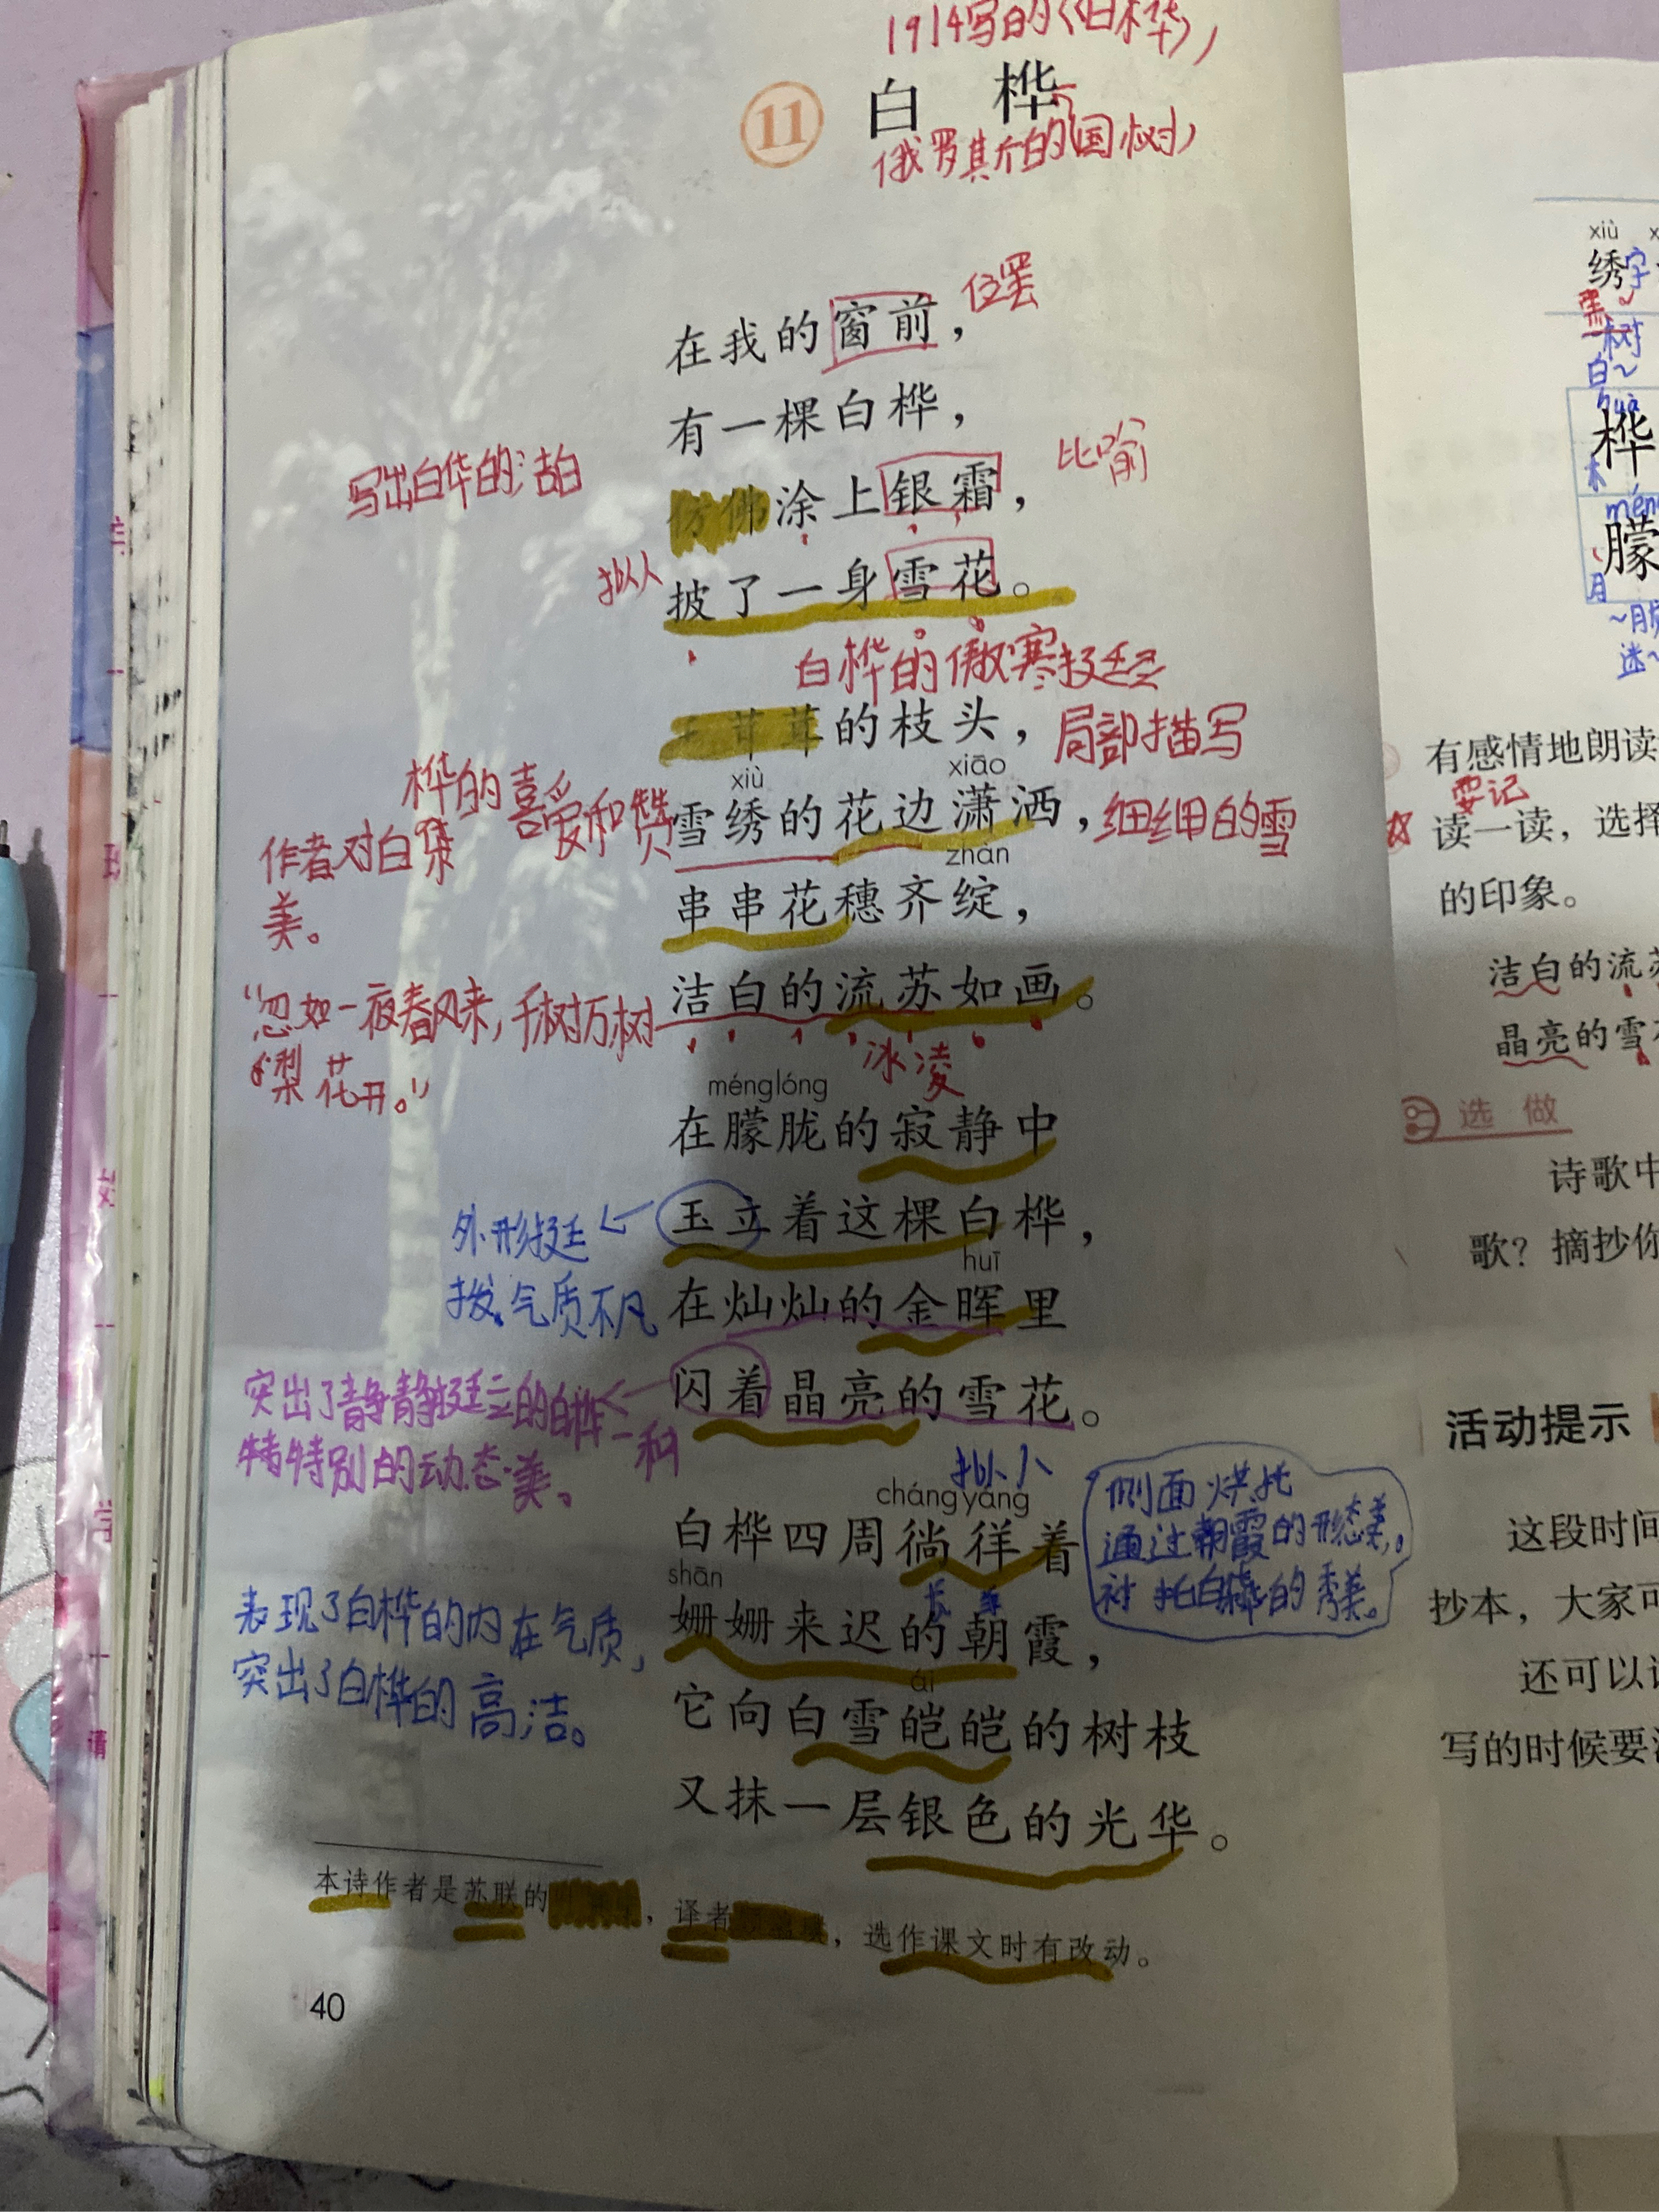 1914写的《白桦》
11 白 桦
俄罗斯的国树
在我的窗前，
位置
有一棵白桦，
写出白华的洁白
仿佛涂上银霜，
比喻
拟人
披了一身雪花。
白桦的傲寒挺立
茸茸的枝头，
局部描写
xiù
xiāo
雪绣的花边潇洒，
细细的雪
作者对白桦的喜爱和赞
美。
zhàn
串串花穗齐绽，
洁白的流苏如画。
“忽如一夜春风来，千树万树
梨花开。”
冰凌
ménglóng
在朦胧的寂静中
玉立着这棵白桦，
外形挺
拔，气质不凡
huī
在灿灿的金晖里
闪着晶亮的雪花。
突出了静静挺立的白桦一种
特特别的动态美。
拟人
chángyáng
白桦四周徜徉着
侧面烘托
通过朝霞的形态美，
衬托白桦的秀美。
shān
姗姗来迟的朝霞，
表现了白桦的内在气质，
突出了白桦的高洁。
ái
它向白雪皑皑的树枝
又抹一层银色的光华。
本诗作者是苏联的，译者，选作课文时有改动。
40
xiù
绣字
树
白～
huà
桦
木
朦
月
迷～
有感情地朗读
要记
读一读，选择
的印象。
洁白的流苏
晶亮的雪花
选 做
诗歌中
歌？摘抄你
活动提示
这段时间
抄本，大家可
还可以
写的时候要注